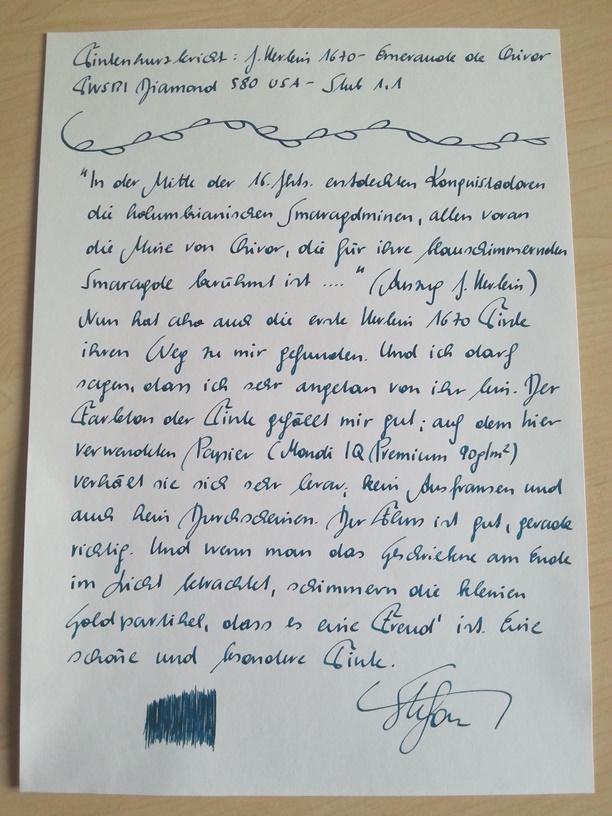 Tintenkurzbericht: J. Herbin 1670 - Emeraude de Chivor
TWSBI Diamond 580 USA - Stub 1.1
"In der Mitte der 16. Jhts. entdeckten Konquistadoren
die kolumbianischen Smaragdminen, allen voran
die Mine von Chivor, die für ihre blauschimmernden
Smaragde berühmt ist .... " (Auszug J. Herbin)
Nun hat also auch die erste Herbin 1670 Tinte
ihren Weg zu mir gefunden. Und ich darf
sagen, dass ich sehr angetan von ihr bin. Der
Farbton der Tinte gefällt mir gut; auf dem hier
verwendeten Papier (Mondi IQ Premium 90g/m²)
verhält sie sich sehr brav; kein Ausfransen und
auch kein Durchscheinen. Der Fluss ist gut, gerade
richtig. Und wenn man das Geschriebne am Ende
im Licht betrachtet, schimmern die kleinen
Goldpartikel, dass es eine Freud' ist. Eine
schöne und besondere Tinte.
Stefan